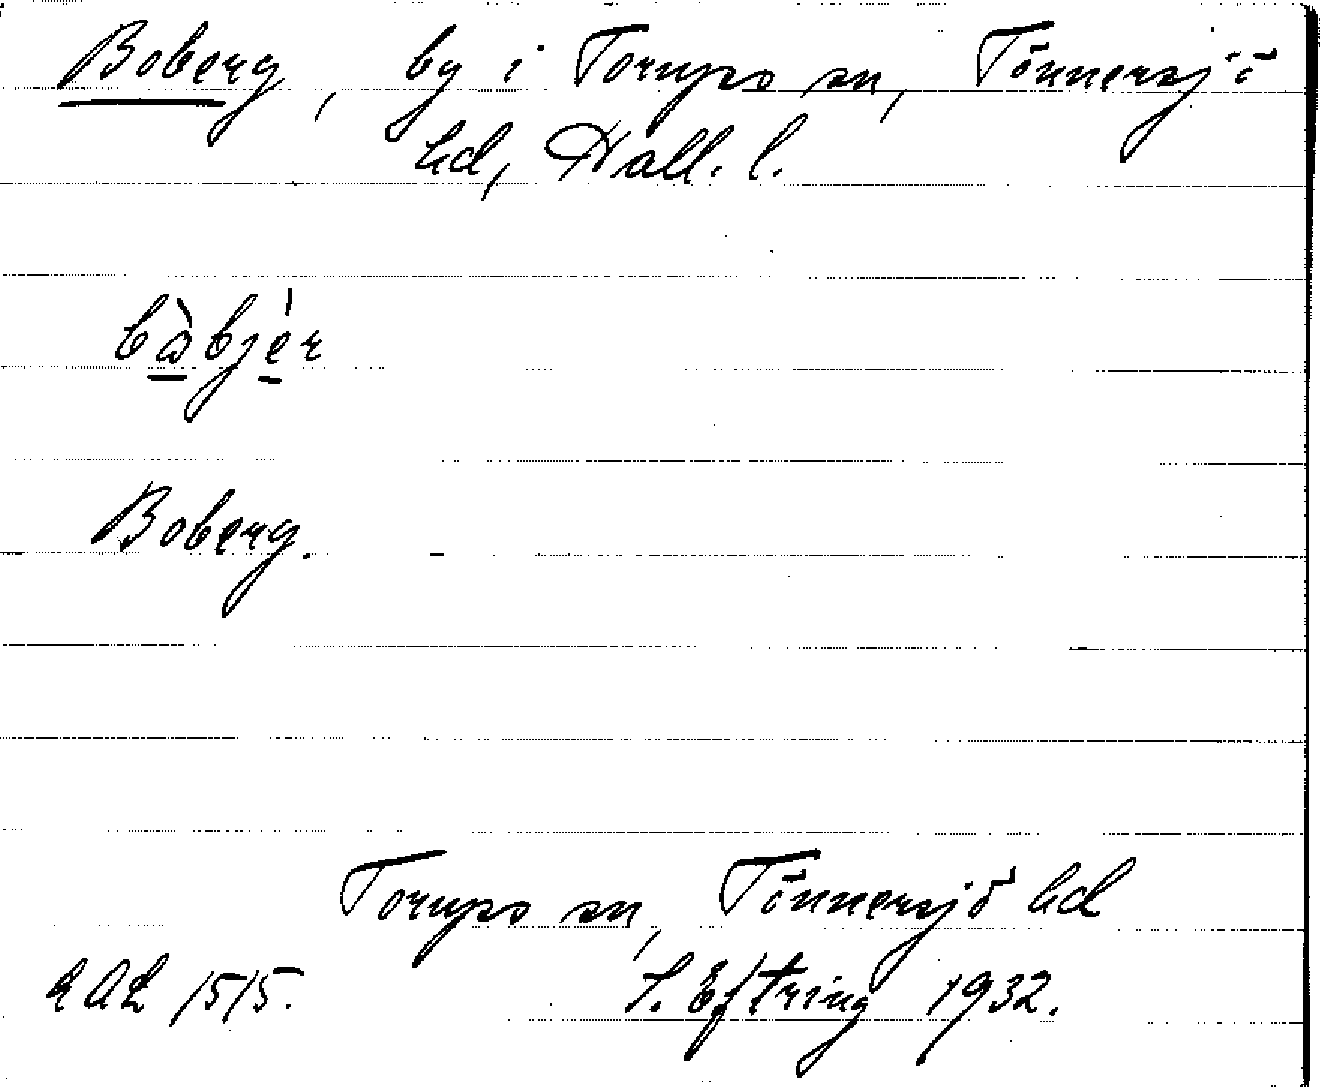 Boberg, by i Torups sn, Tönnersjö
hd, Hall. l.
Boberg.
Torups sn, Tönnersjö hd
LAL 1515. S. Eftring 1932.